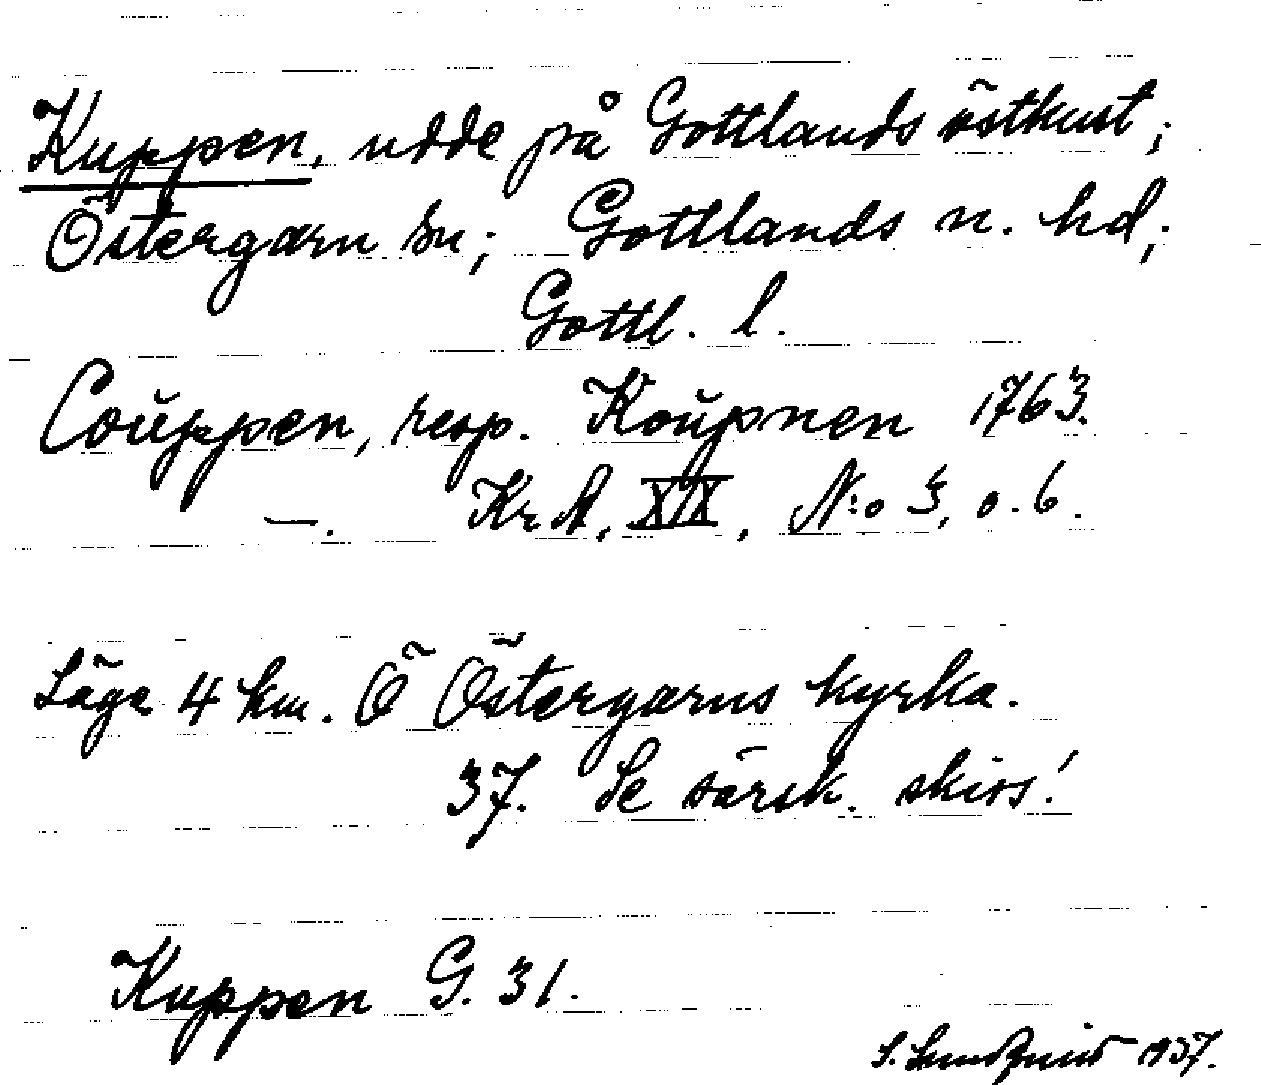 Kuppen, udde på Gottlands östkust;
Östergarn sn; Gottlands n. hd;
Gottl. l.
Coŭppen, resp. Koŭpnen 1763.
—. KrA, XIX, N:o 3, o. 6.
Läge 4 km. Ö Östergarns kyrka.
37. Se särsk. skiss!
Kuppen G. 31.
S. Lundquist 1937.